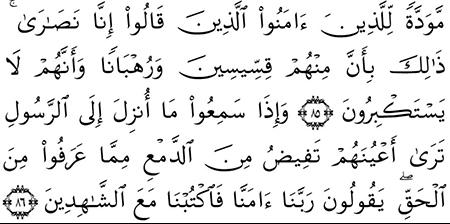 مَّوَدَّةً لِّلَّذِينَ ءَامَنُواْ ٱلَّذِينَ قَالُوٓاْ إِنَّا نَصَٰرَىٰۚ
ذَٰلِكَ بِأَنَّ مِنۡهُمۡ قِسِّيسِينَ وَرُهۡبَانٗا وَأَنَّهُمۡ لَا
يَسۡتَكۡبِرُونَ ﴿٨٥﴾ وَإِذَا سَمِعُواْ مَآ أُنزِلَ إِلَى ٱلرَّسُولِ
تَرَىٰٓ أَعۡيُنَهُمۡ تَفِيضُ مِنَ ٱلدَّمۡعِ مِمَّا عَرَفُواْ مِنَ
ٱلۡحَقِّۖ يَقُولُونَ رَبَّنَآ ءَامَنَّا فَٱكۡتُبۡنَا مَعَ ٱلشَّٰهِدِينَ ﴿٨٦﴾